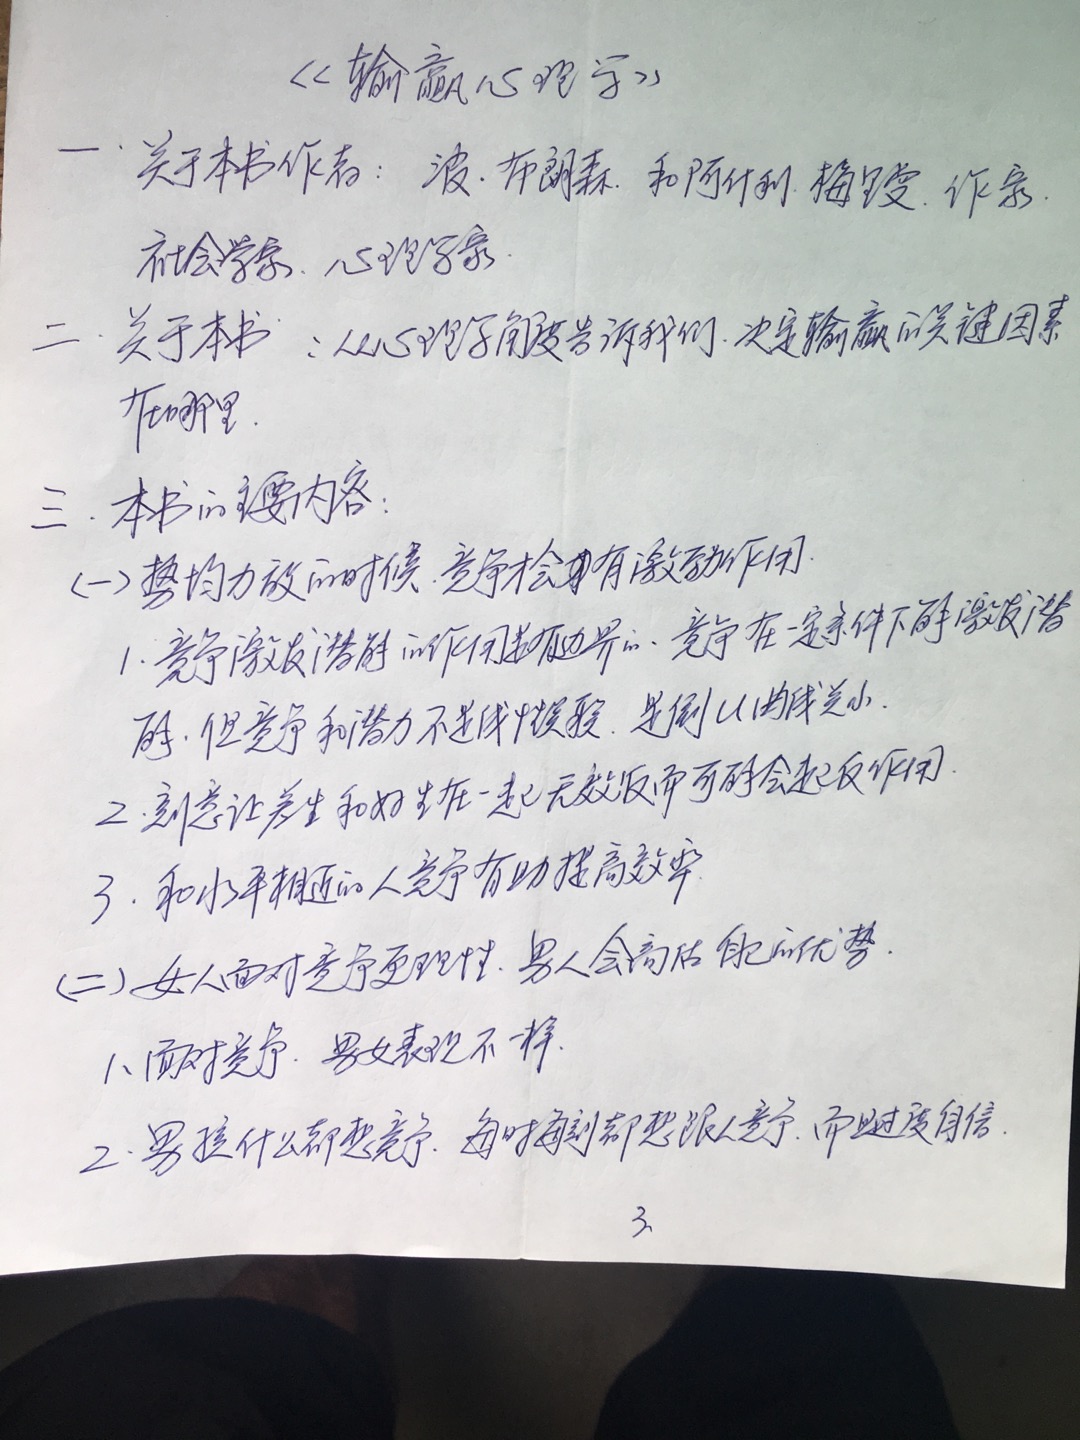 《输赢心理学》
一.关于本书作者: 波.布朗森.和阿什利.梅里曼.作家.
社会学家.心理学家.
二.关于本书:从心理学角度告诉我们.决定输赢的关键因素
在哪里.
三.本书的主要内容:
(一)势均力敌的时候.竞争才会有激励作用.
1.竞争激发潜能的作用是有边界的.竞争在一定条件下能激发潜
能.但竞争和潜力不是线性关联.是倒U曲线关小.
2.刻意让差生和好生在一起无效反而可能会起反作用.
3.和水平相近的人竞争有助提高效率.
(二)女人面对竞争更理性.男人会高估自己的优势.
1、面对竞争.男女表现不一样.
2.男孩什么都想竞争.每时每刻都想跟人竞争.而且过度自信.
3.